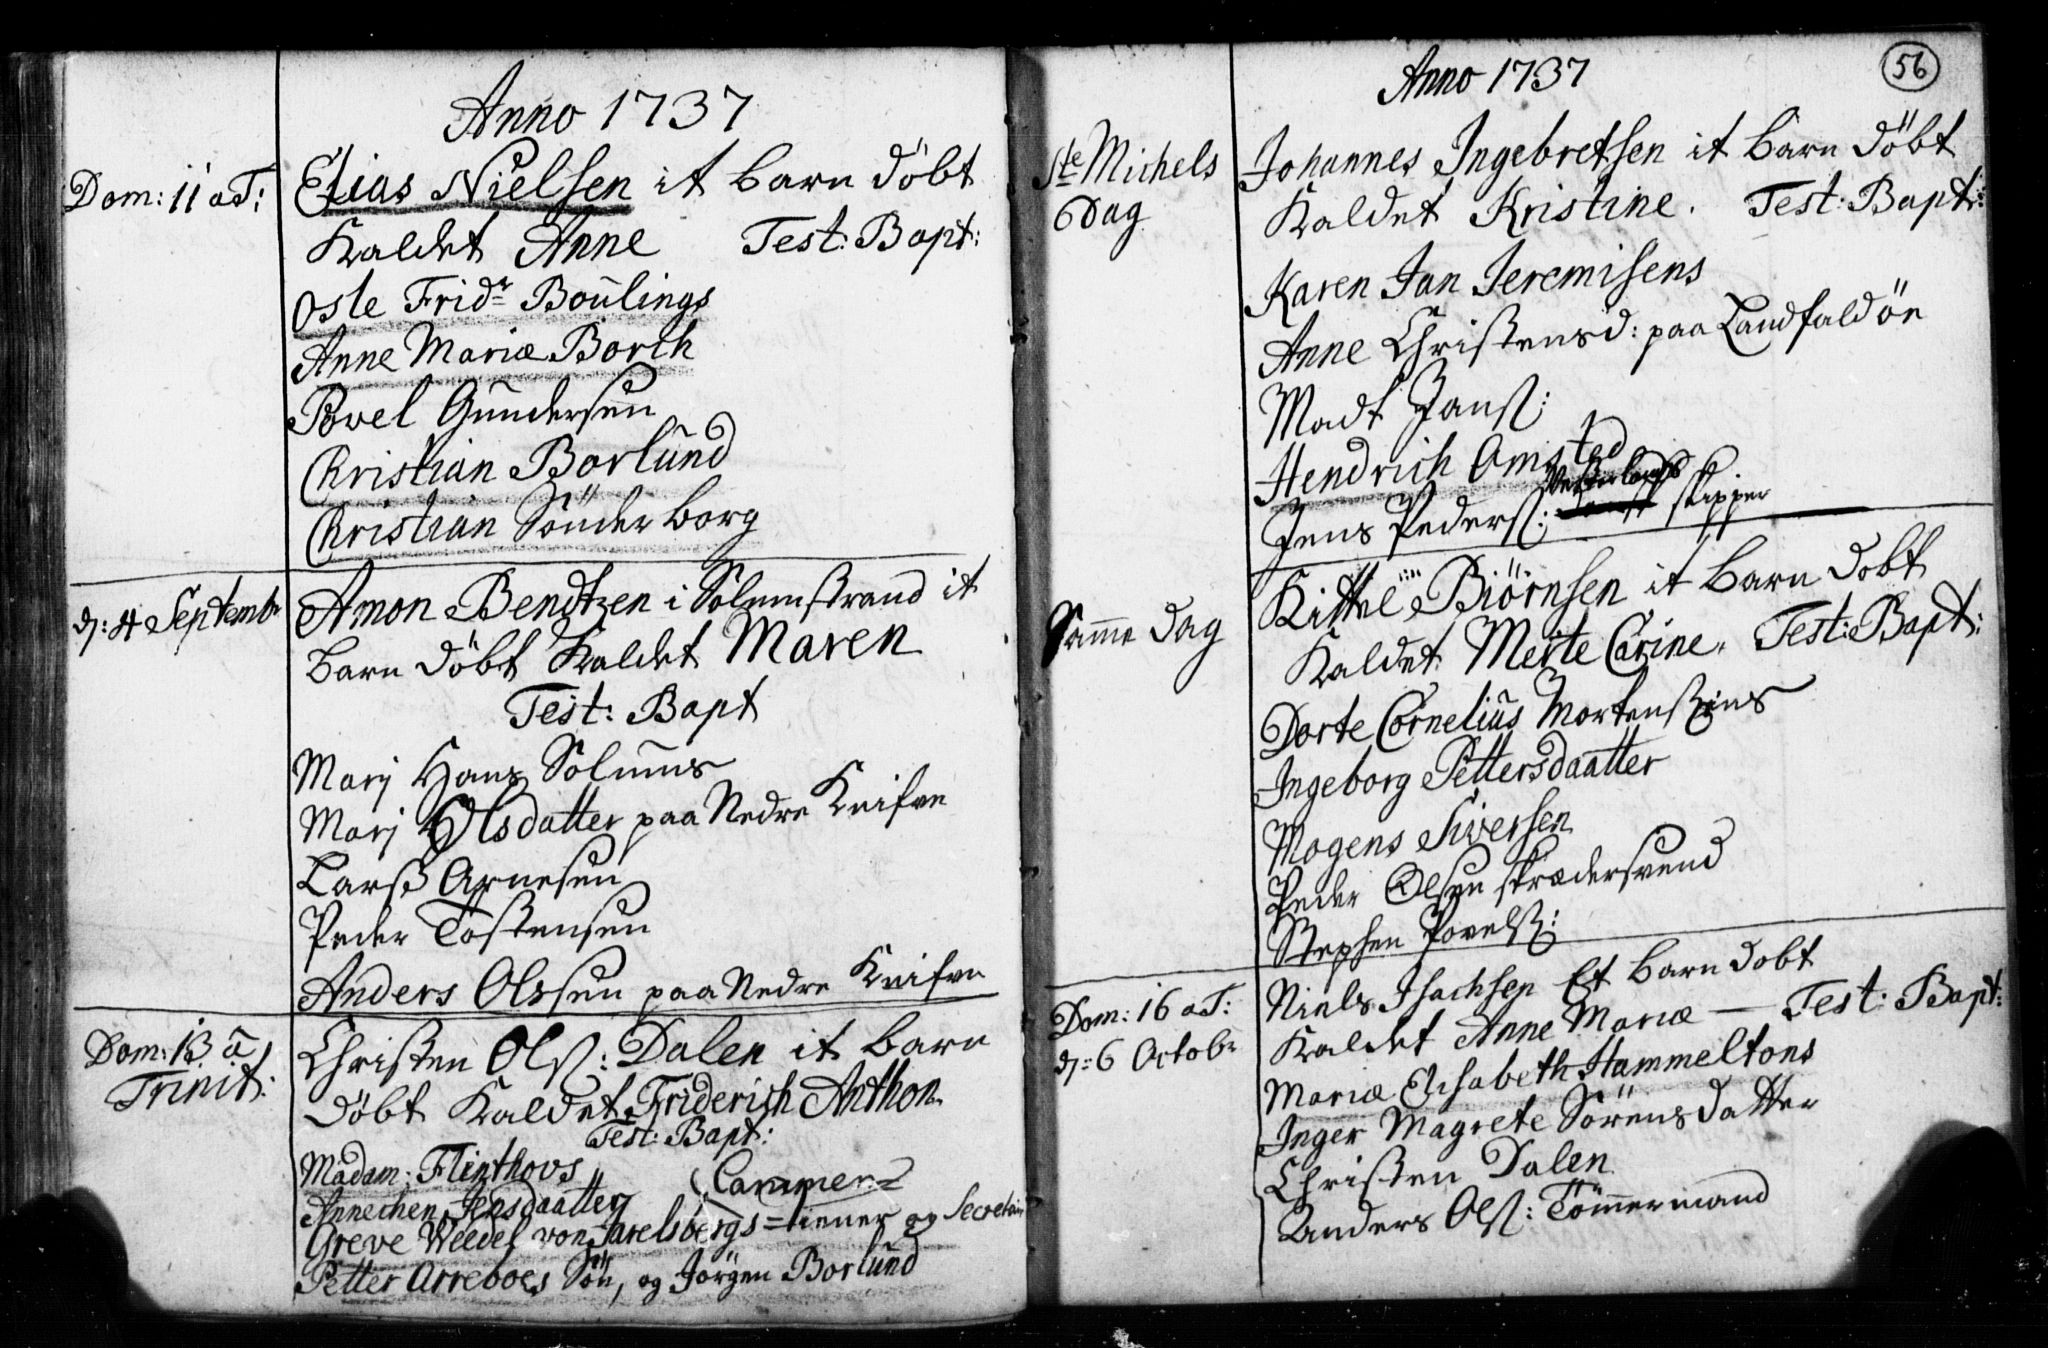 Anno 1737
Dom: 11 a T:
Elias Nielsen it barn döbt
Kaldet Anne Test: Bapt:
Osle Fridr Boulings
Anne Mariæ Borch
Povel Gundersen
Christian Borlund
Christian Sönderborg
d: 4 Septembr
Amon Bendtzen i Solumstrand it
barn döbt Kaldet Maren
Test: Bapt
Marj Hans Solums
Marj Olsdatter paa Nedre Knifve
Larss Arnesen
Peder Tostensen
Anders Olssen paa Nedre Knifve
Dom: 13 a
Trinit:
Christen Olss: Dalen it barn
döbt Kaldet Friderich Anthon
Test: Bapt:
Madam: Flinthovs
Annechen Jensdaatter
Cammer=
Greve Weedel von Jarelsbergs =tiener og Secretair
Petter Arreboes Sön, og Jörgen Borlund
56
Anno 1737
Ste Michels
Dag
Johannes Ingebretsen it barn döbt
Kaldet Kristine. Test: Bapt:
Karen Jan Jeremisens
Anne Christensd: paa Landfaldöe
Madt Janss:
Hendrich Omsted
Jens Pederss: skipper
Samme dag
Kittel Biörnsen it barn döbt
Kaldet Merte Carine. Test: Bapt:
Dorte Cornelius Mortensens
Ingeborg Pettersdaatter
Mogens Siversen
Peder Olsen skrædersvend
Stephen Povelss:
Dom: 16 a T:
d: 6 Octobr
Niels Isachsen Et barn döbt
Kaldet Anne Mariæ — Test: Bapt:
Mariæ Elisabeth Hammeltons
Inger Magrete Sörensdatter
Christen Dalen
Anders Olss: Tömmermand